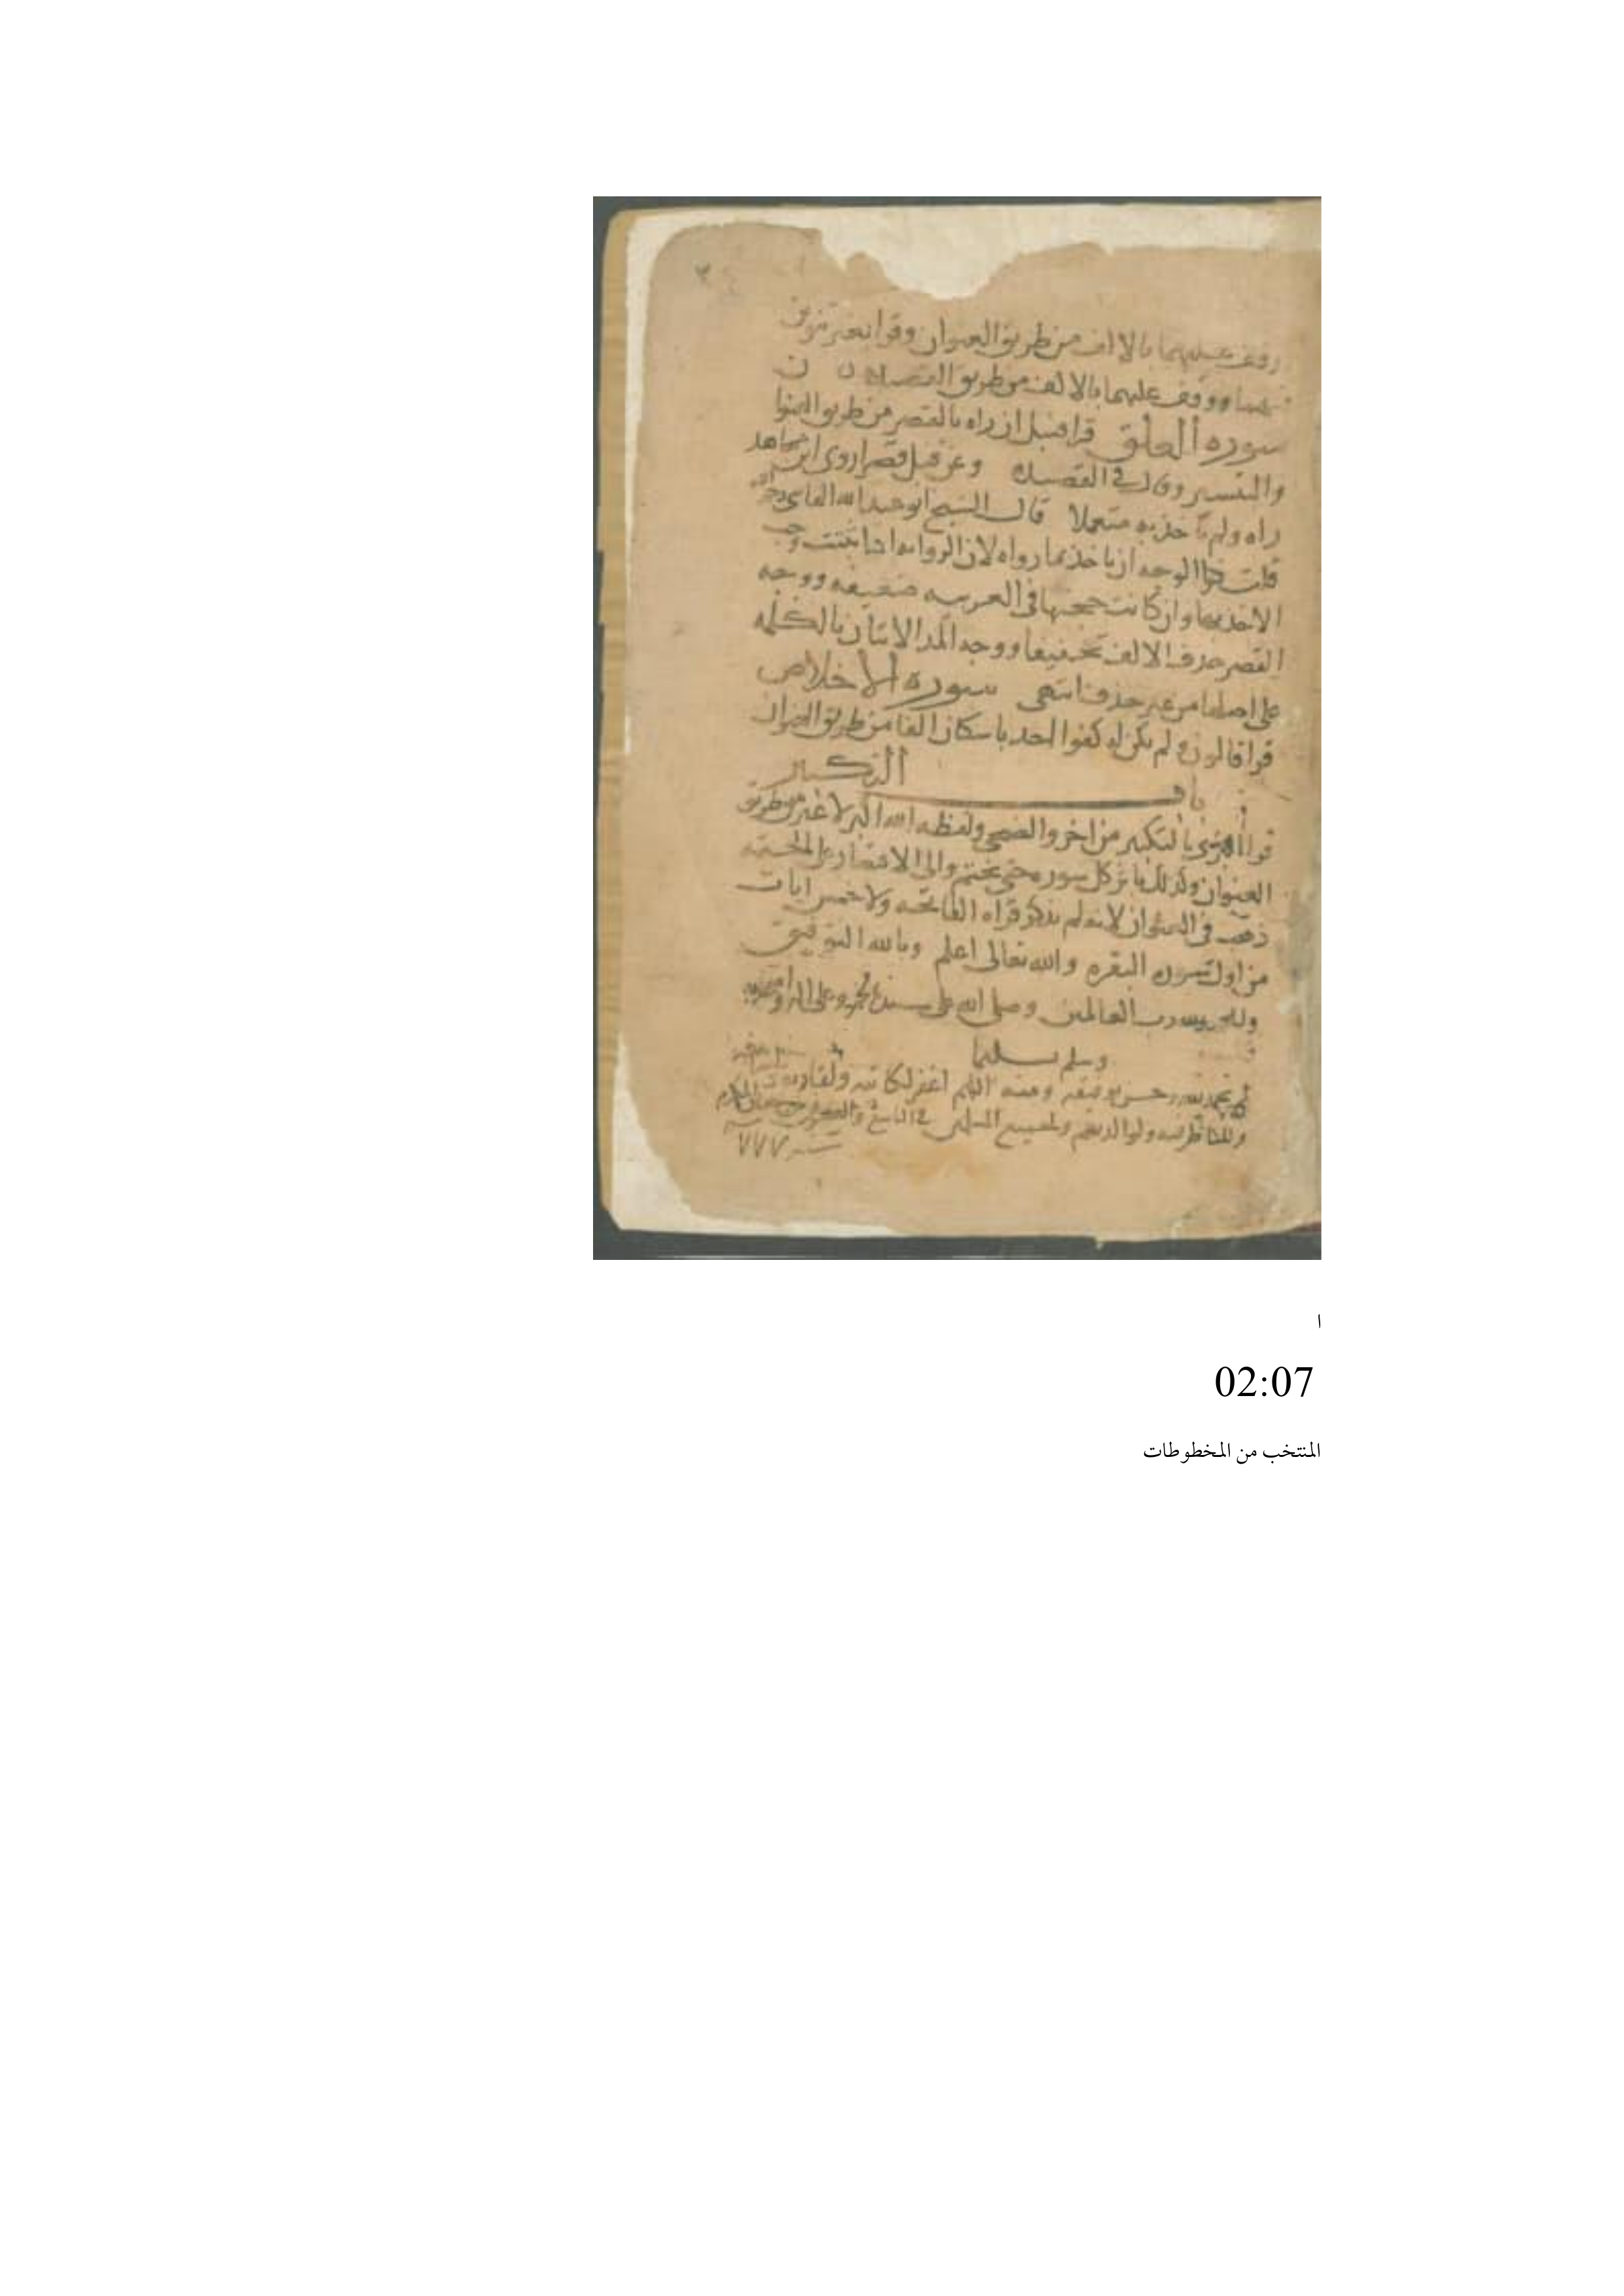 وقف عليهما بالالف من طريق العنوان وقرا بغير تنوين
ووقف عليهما بالالف من طريق القصيد ن ن
سوره العلق قرا قنبل ان راه بالقصر من طريق العنوا
والتيسير وقال في القصيد وعن قنبل قصرا روى ابن مجاهد
راه ولم ياخذ به متعملا قال الشيخ ابو عبد الله الفاسي رحمه الله
قلت الوجه ان ياخذ بما رواه لان الروايه اذا ثبتت وجب
الاخذ بها وان كانت حجتها في العربيه ضعيفه ووجه
القصر حذف الالف تخفيفا ووجه المد الاتيان بالكلمه
على اصلها من غير حذف انتهى سوره الاخلاص
قرا قالون ولم يكن له كفوا احد باسكان الفا من طريق العنوان
باب التكبير
قرا البزي بالتكبير من اخر والضحى ولفظه الله اكبر لا غير من طريق
العنوان وكذلك باثر كل سوره حتى يختم والى الاقتصار على الختمه
ذهب في العنوان لانه لم يذكر قراه الفاتحه ولا خمس ايات
من اول سوره البقره والله تعالى اعلم وبالله التوفيق
ولله الحمد رب العالمين وصلى الله على سيدنا محمد وعلى اله وصحبه
وسلم تسليما
بحمد الله وحسن توفيقه ومنه اللهم اغفر لكاتبه ولقاريه
وللناظر فيه ولوالديهم ولجميع المسلمين في التاسع والعشرين
سنه ٧٧٧
٣
ا
02:07
المنتخب من المخطوطات